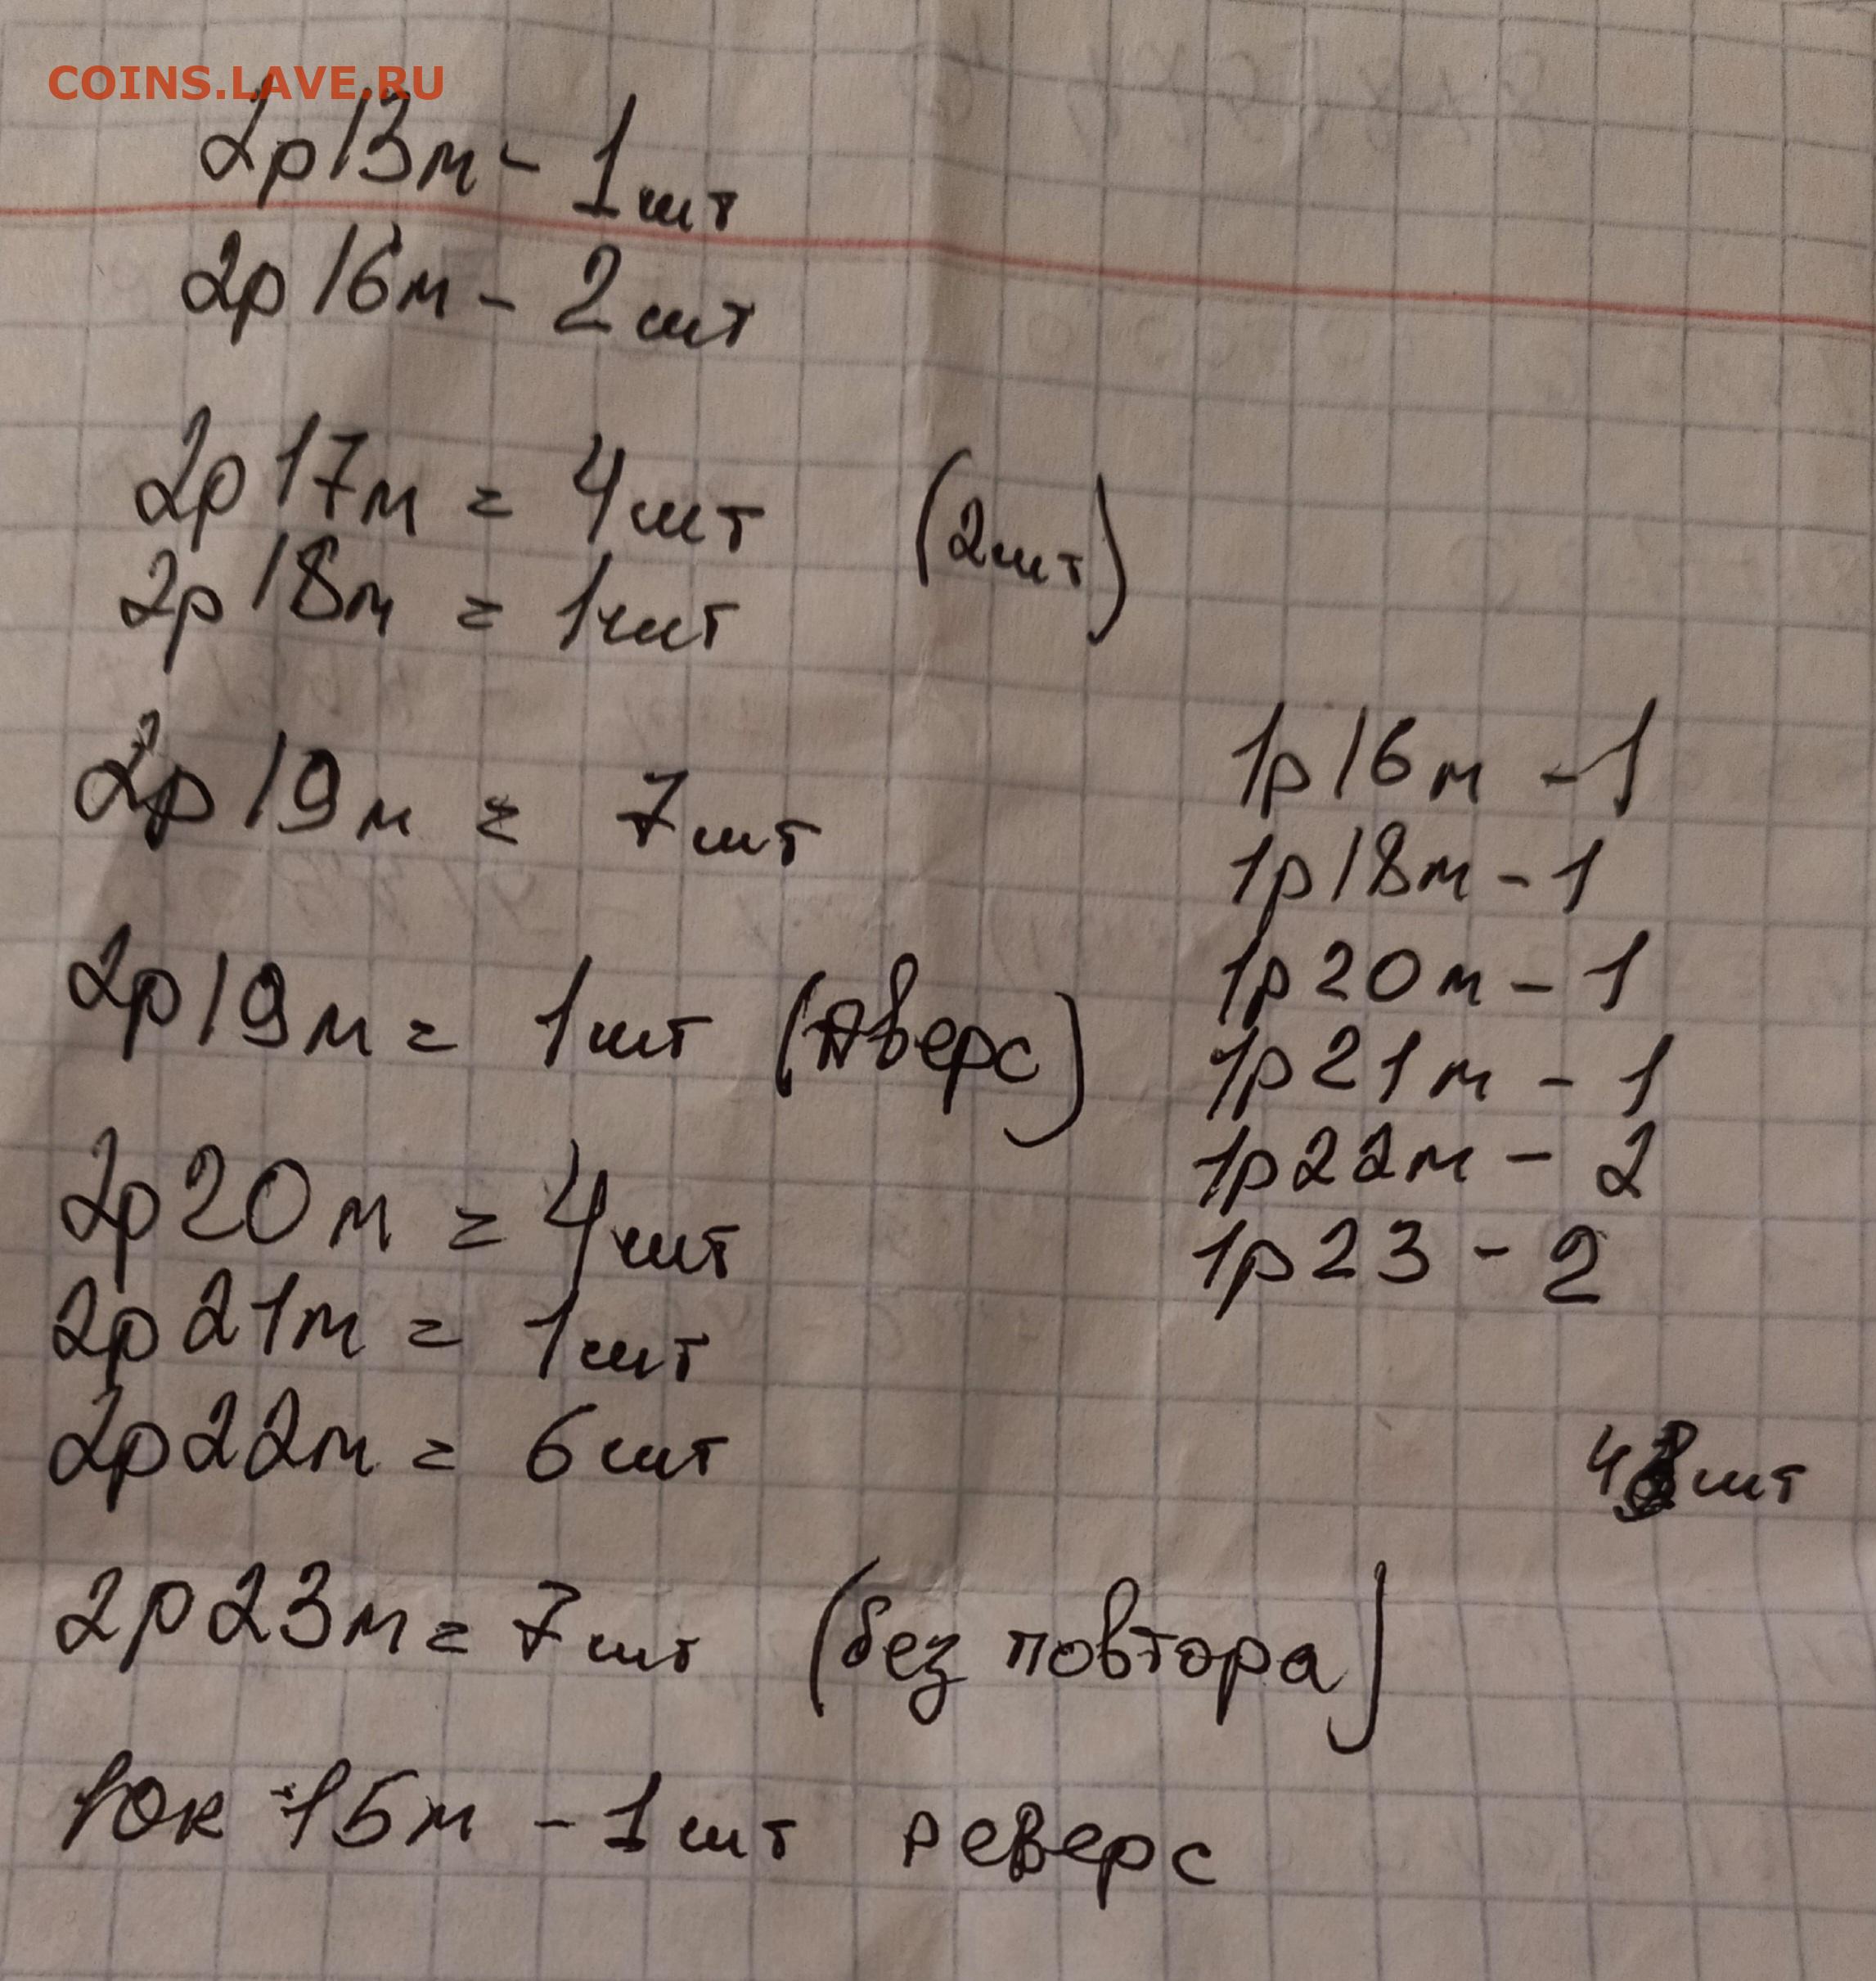 COINS.LAVE.RU
2р13м - 1шт
2р16м - 2шт
2р17м = 4шт (2шт)
2р18м = 1шт
2р19м = 7шт
2р19м = 1шт (Аверс)
2р20м = 4шт
2р21м = 1шт
2р22м = 6шт
2р23м = 7шт (без повтора)
10к 15м - 1шт реверс
1р16м - 1
1р18м - 1
1р20м - 1
1р21м - 1
1р22м - 2
1р23 - 2
шт